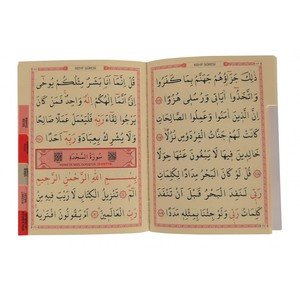 ذٰلِكَ جَزَاؤُهُمْ جَهَنَّمُ بِمَا كَفَرُوا
وَاتَّخَذُوا اٰيَاتِي وَرُسُلِي هُزُوًا
اِنَّ الَّذِينَ اٰمَنُوا وَعَمِلُوا الصَّالِحَاتِ
كَانَتْ لَهُمْ جَنَّاتُ الْفِرْدَوْسِ نُزُلًا
خَالِدِينَ فِيهَا لَا يَبْغُونَ عَنْهَا حِوَلًا
قُلْ لَوْ كَانَ الْبَحْرُ مِدَادًا لِكَلِمَاتِ
رَبِّي لَنَفِدَ الْبَحْرُ قَبْلَ اَنْ تَنْفَدَ
كَلِمَاتُ رَبِّي وَلَوْ جِئْنَا بِمِثْلِهِ مَدَدًا
قُلْ اِنَّمَا اَنَا بَشَرٌ مِثْلُكُمْ يُوحٰى
اِلَيَّ اَنَّمَا اِلٰهُكُمْ اِلٰهٌ وَاحِدٌ فَمَنْ كَانَ
يَرْجُوا لِقَاءَ رَبِّهِ فَلْيَعْمَلْ عَمَلًا صَالِحًا
وَلَا يُشْرِكْ بِعِبَادَةِ رَبِّهِ اَحَدًا
سُورَةُ السَّجْدَةِ
بِسْمِ اللّٰهِ الرَّحْمٰنِ الرَّحِيمِ
الٓمٓ تَنْزِيلُ الْكِتَابِ لَا رَيْبَ فِيهِ مِنْ
رَبِّ الْعَالَمِينَ اَمْ يَقُولُونَ افْتَرٰيهُ